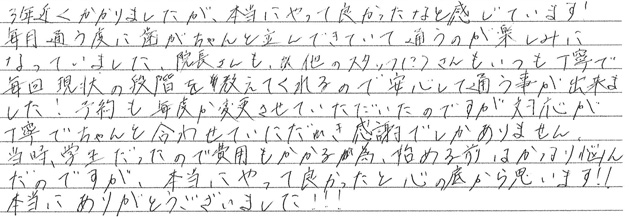 3年近くかかりましたが、本当にやって良かったなと感じています!
毎月通う度に歯がちゃんと並んできていて通うのが楽しみに
なっていました。院長さんも、他のスタッフさんもいつも丁寧で
毎回現状の段階を教えてくれるので安心して通う事が出来ま
した!予約も毎度か変更させていただいたのですが対応が
丁寧でちゃんと合わせていただき感謝でしかありません。
当時、学生だったので費用もかかる為、始める前はかなり悩ん
だのですが、本当にやって良かったと心の底から思います!!
本当にありがとうございました!!!